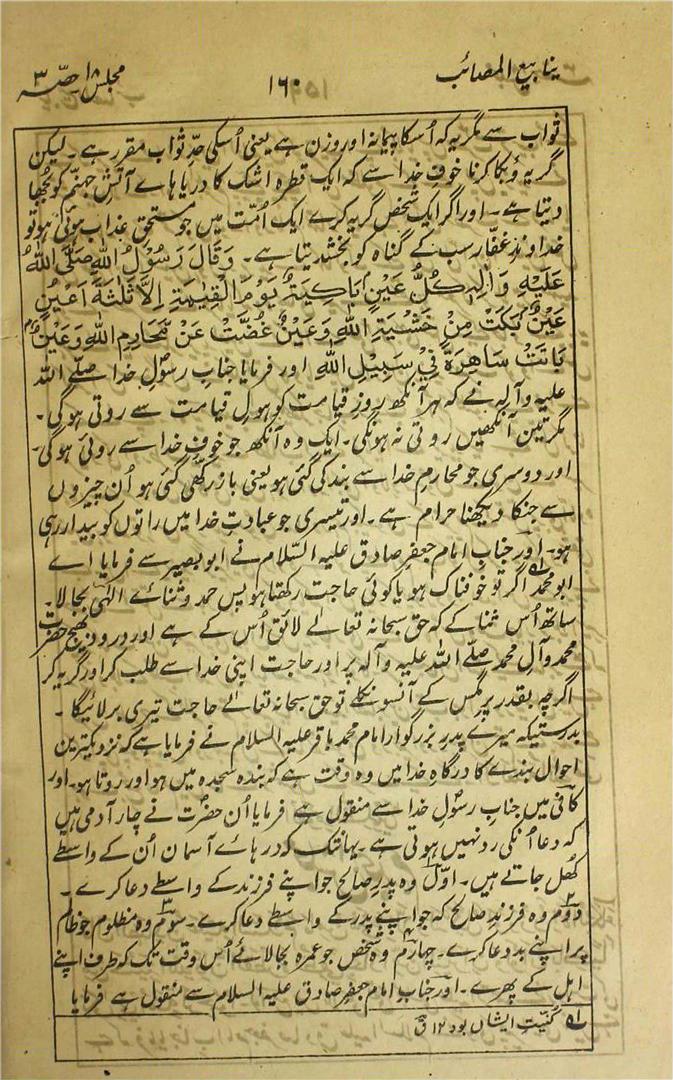 ینابیع المصائب
۱۶۰
مجلس ۱۸ حصہ ۳
ثواب سے مگر گریہ کہ اُسکا پیمانہ اور وزن ہے یعنی اُسکی حدِّ ثواب مقرر ہے۔ لیکن
گریہ وُبکا کرنا خوفِ خدا سے کہ ایک قطرہ اشک کا دریا ہاے آتشِ جہنّم کو بُجھا
دیتا ہے۔ اور اگر ایک شخص گریہ کرے ایک اُمّت میں جو مستحقِ عذاب ہوئی ہو تو
خداوندِ غفّار سب کے گناہ کو بخشدیتا ہے۔ وَقَالَ رَسُوْلُ اللّٰہِ صَلَّی اللّٰہُ
عَلَیْہِ وَاٰلِہٖ کُلُّ عَیْنٍ بَاکِیَۃٌ یَوْمَ الْقِیٰمَۃِ اِلَّا ثَلٰثَۃَ اَعْیُنٍ
عَیْنٌ بَکَتْ مِنْ خَشْیَۃِ اللّٰہِ وَعَیْنٌ غُضَّتْ عَنْ مَحَارِمِ اللّٰہِ وَعَیْنٌ
بَاتَتْ سَاهِرَۃً فِیْ سَبِیْلِ اللّٰہِ اور فرمایا جناب رسولِ خدا صلے اللہ
علیہ وآلہ نے کہ ہر آنکھ روزِ قیامت کو ہولِ قیامت سے روتی ہوگی۔
مگر تین آنکھیں روتی نہ ہونگی۔ ایک وہ آنکھ جو خوفِ خدا سے روئی ہوگی۔
اور دوسری جو محارمِ خدا سے بند کی گئی ہو یعنی باز رکھی گئی ہو اُن چیزوں
سے جنکا دیکھنا حرام ہے۔ اور تیسری جو عبادتِ خدا میں راتوں کو بیدار رہی
ہو۔ اور جناب امام جعفرِ صادق علیہ السّلام نے ابو بصیر سے فرمایا اے
ابو محمد اگر تو خوفناک ہو یا کوئی حاجت رکھتا ہو پس حمد و ثناے الٰہی بجا لا۔
ساتھ اُس ثنا کے کہ حق سبحانہ تعالےٰ لائق اُس کے ہے اور درود بھیج حضرت
محمد وآلِ محمد صلّے اللہ علیہ و آلہ پر اور حاجت اپنی خدا سے طلب کر اور گریہ کر
اگرچہ بقدر پرِ مگس کے آنسو نکلے تو حق سبحانہ تعالےٰ حاجت تیری بر لائیگا۔
بدرستیکہ میرے پدر بزرگوار امام محمد باقر علیہ السلام نے فرمایا ہے کہ نزدیکترین
احوال بندے کا درگاہِ خدا میں وہ وقت ہے کہ بندہ سجدہ میں ہو اور روتا ہو۔ اور
کافی میں جناب رسولِ خدا سے منقول ہے فرمایا اُن حضرت نے چار آدمی ہیں
کہ دعا اُنکی رد نہیں ہوتی ہے۔ یہانتک کہ درہاے آسمان اُن کے واسطے
کھُل جاتے ہیں۔ اوّل وہ پدرِ صالح جو اپنے فرزند کے واسطے دعا کرے۔
دوم وہ فرزندِ صالح کہ جو اپنے پدر کے واسطے دعا کرے۔ سوم وہ مظلوم جو ظالم
پر اپنے بد دعا کرے۔ چہارم وہ شخص جو عمرہ بجا لائے اُس وقت تک کہ طرف اپنے
اہل کے پھرے۔ اور جناب امام جعفرِ صادق علیہ السلام سے منقول ہے فرمایا
۱ کنیّتِ ایشاں بود ۱۲ ق